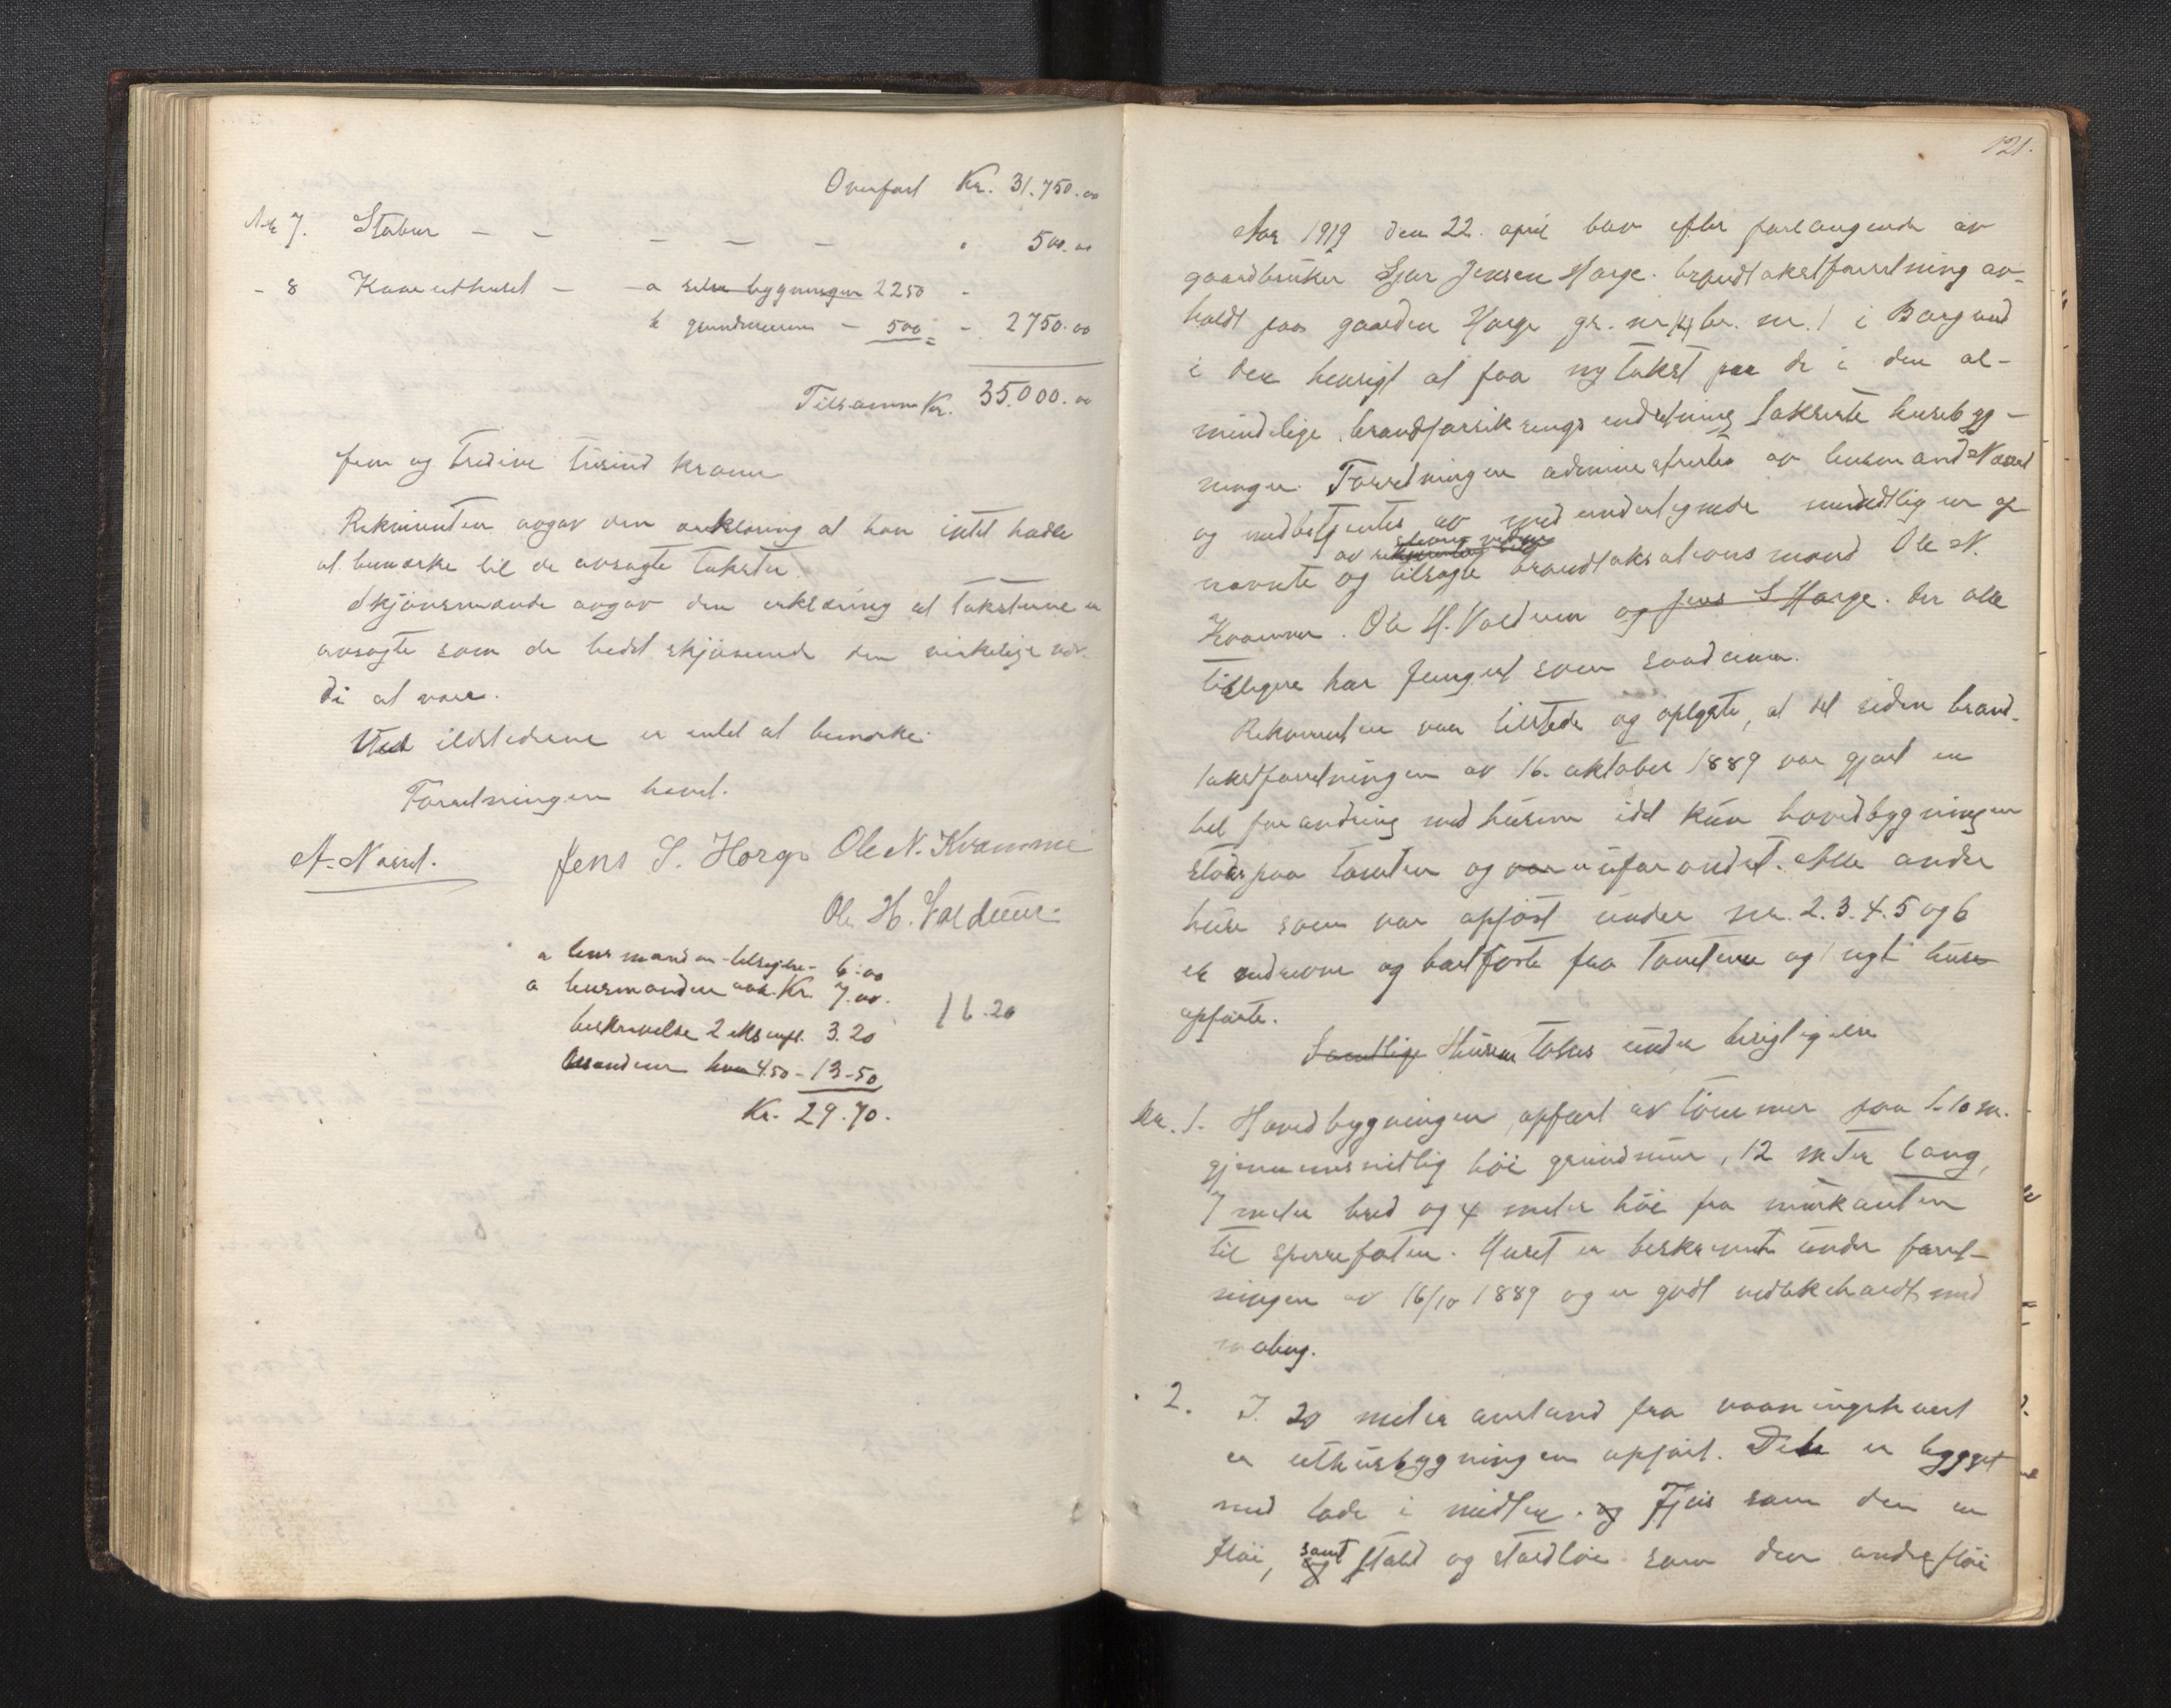 Overført Kr. 31.750.00
No 7. Stabur — — — — — " 500.00
- 8 Kværnhuset — - a selve bygningen 2250 -
b grundmuren - 500 - 2750.00
Tilsammen Kr. 35.000.00
fem og tredive tusind kroner
Rekvirenten avgav den erklæring at han intet hadde
at bemærke til de avsagte takster.
Skjønsmændene avgav den erklæring at taksterne er
avsagte som de bedst skjønnende den virkelige vær-
di at være.
Ved ildstederne er intet at bemærke.
Forretningen hævet.
A. Næsset. Jens S. Horge Ole N. Kvamme
Ole H. Voldum
a lensmanden tilsigelse - 6.00
a lensmanden Kr. 7.00.
beskrivelse 2 eksempl. 3.20 16.20
Mændene hver 4.50 - 13-50
Kr. 29.70.
121.
Aar 1919 den 22. april blev efter forlangende av
gaardbruker Sjur Jensen Horge brandtakstforretning av-
holdt paa gaarden Horge gr. nr. 14 br. nr. 1 i Borgund
i den hensigt at faa ny takst paa de i den al-
mindelige brandforsikringsindretning takserte husebyg-
ninger. Forretningen administrertes av lensmand Næsset
og medbetjentes av med undertegnede mundtlig av op
nævnte og tilsagte brandtaksationsmænd Ole N.
Kvamme. Ole H. Voldum og Jens S Horge. der alle
tidligere har fungert som saadanne.
Rekvirenten var tilstede og oplyste, at det siden brand-
takstforretningen av 16. oktober 1889 var gjort en
hel forandring med husene idet kun hovedbygningen
staar paa tomten og var uforandret. Alle andre
huse som var opført under nr. 2. 3. 4. 5 og 6
er nedrevne og bortførte fra tomterne og nyt huse
opførte.
Samtlige Husene toges under besigtigelse
Nr. 1. Hovedbygningen, opført av tømmer paa 1.10 m.
gjennemsnitlig høi grundmur, 12 meter lang,
7 meter bred og 4 meter høi fra murkanten
til sperrefoten. Huset er beskrevet under forret-
ningen av 16/10 1889 og er godt vedlikeholdt med
maling.
" 2. I 20 meter avstand fra vaaningshuset
er uthusbygningen opført. Dette er bygget
med lade i midten. og fjøs som den en
fløi, samt og stald og staldløe som den andre fløi